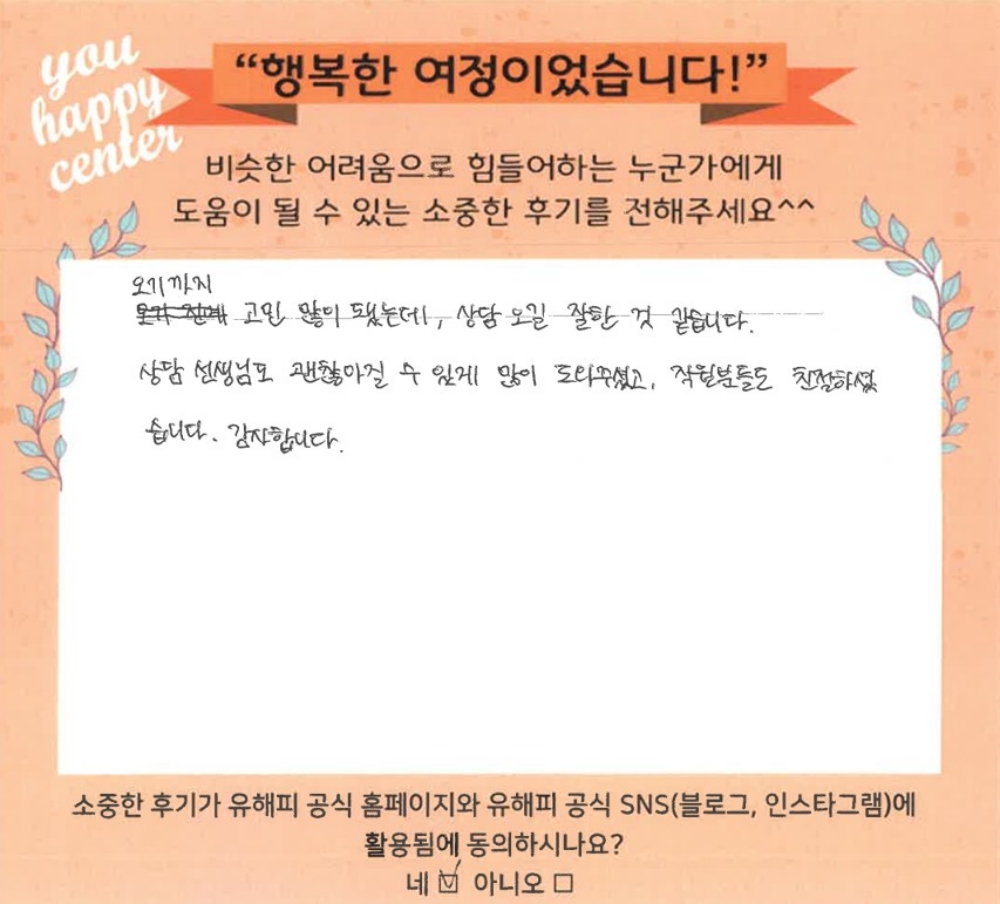 you
happy
center
“행복한 여정이었습니다!”
비슷한 어려움으로 힘들어하는 누군가에게
도움이 될 수 있는 소중한 후기를 전해주세요^^
오기까지
고민 많이 됐는데, 상담 오길 잘한 것 같습니다.
상담 선생님도 괜찮아질 수 있게 많이 도와주셨고, 직원분들도 친절하셨
습니다. 감사합니다.
소중한 후기가 유해피 공식 홈페이지와 유해피 공식 SNS(블로그, 인스타그램)에
활용됨에 동의하시나요?
네 ☑ 아니오 □